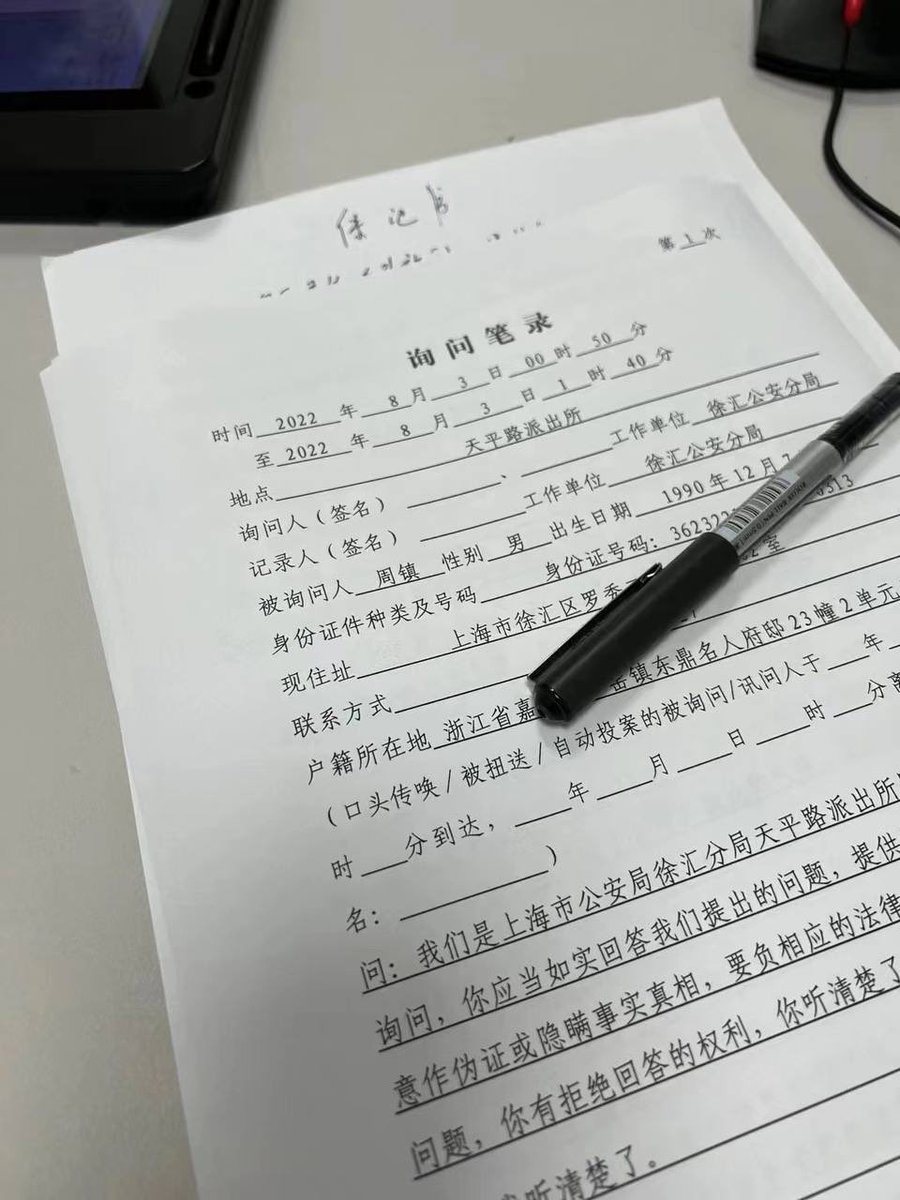 第 1 次
询问笔录
时间 2022 年 8 月 3 日 00 时 50 分
至 2022 年 8 月 3 日 1 时 40 分
地点 天平路派出所
询问人(签名) 、 工作单位 徐汇公安分局
记录人(签名) 工作单位 徐汇公安分局
被询问人 周镇 性别 男 出生日期 1990 年 12 月
身份证件种类及号码 身份证号码: 362322 0313
现住址 上海市徐汇区罗秀 室
联系方式
户籍所在地 浙江省嘉 镇东鼎名人府邸23幢2单元
(口头传唤/被扭送/自动投案的被询问/讯问人于 年
时 分到达, 年 月 日 时 分离
名: )
问: 我们是上海市公安局徐汇分局天平路派出所
询问, 你应当如实回答我们提出的问题, 提供
意作伪证或隐瞒事实真相, 要负相应的法律
问题, 你有拒绝回答的权利, 你听清楚了
听清楚了。